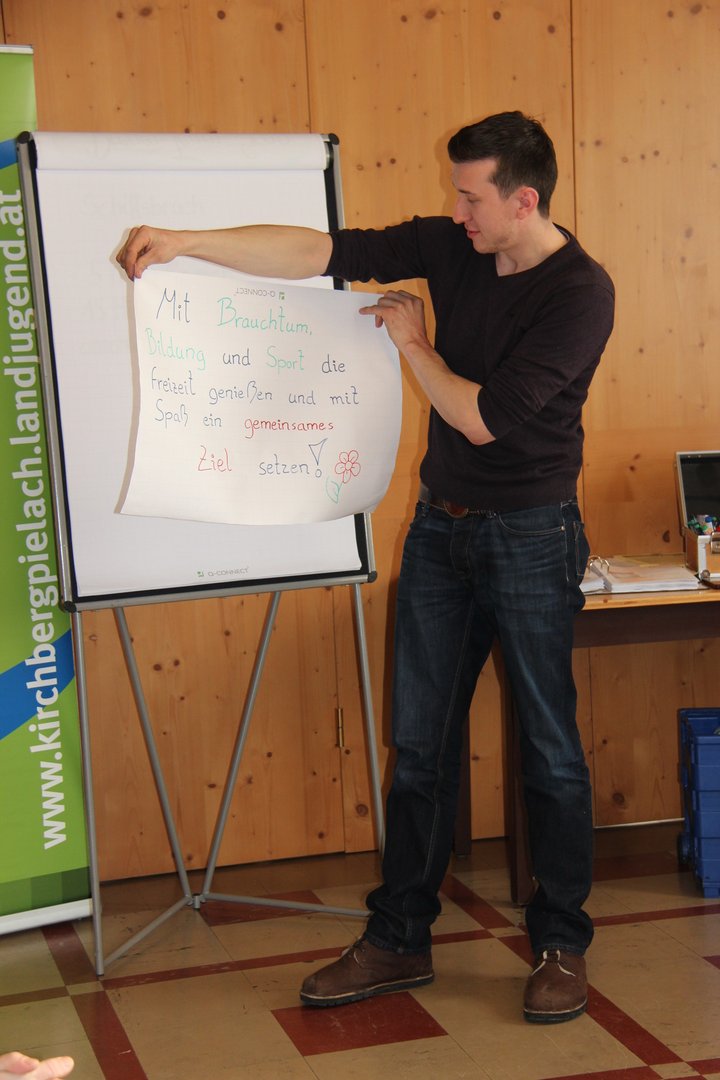 www.kirchbergpielach.landjugend.at
Q-CONNECT
Mit Brauchtum,
Bildung und Sport die
Freizeit genießen und mit
Spaß ein gemeinsames
Ziel setzen!
Q-CONNECT